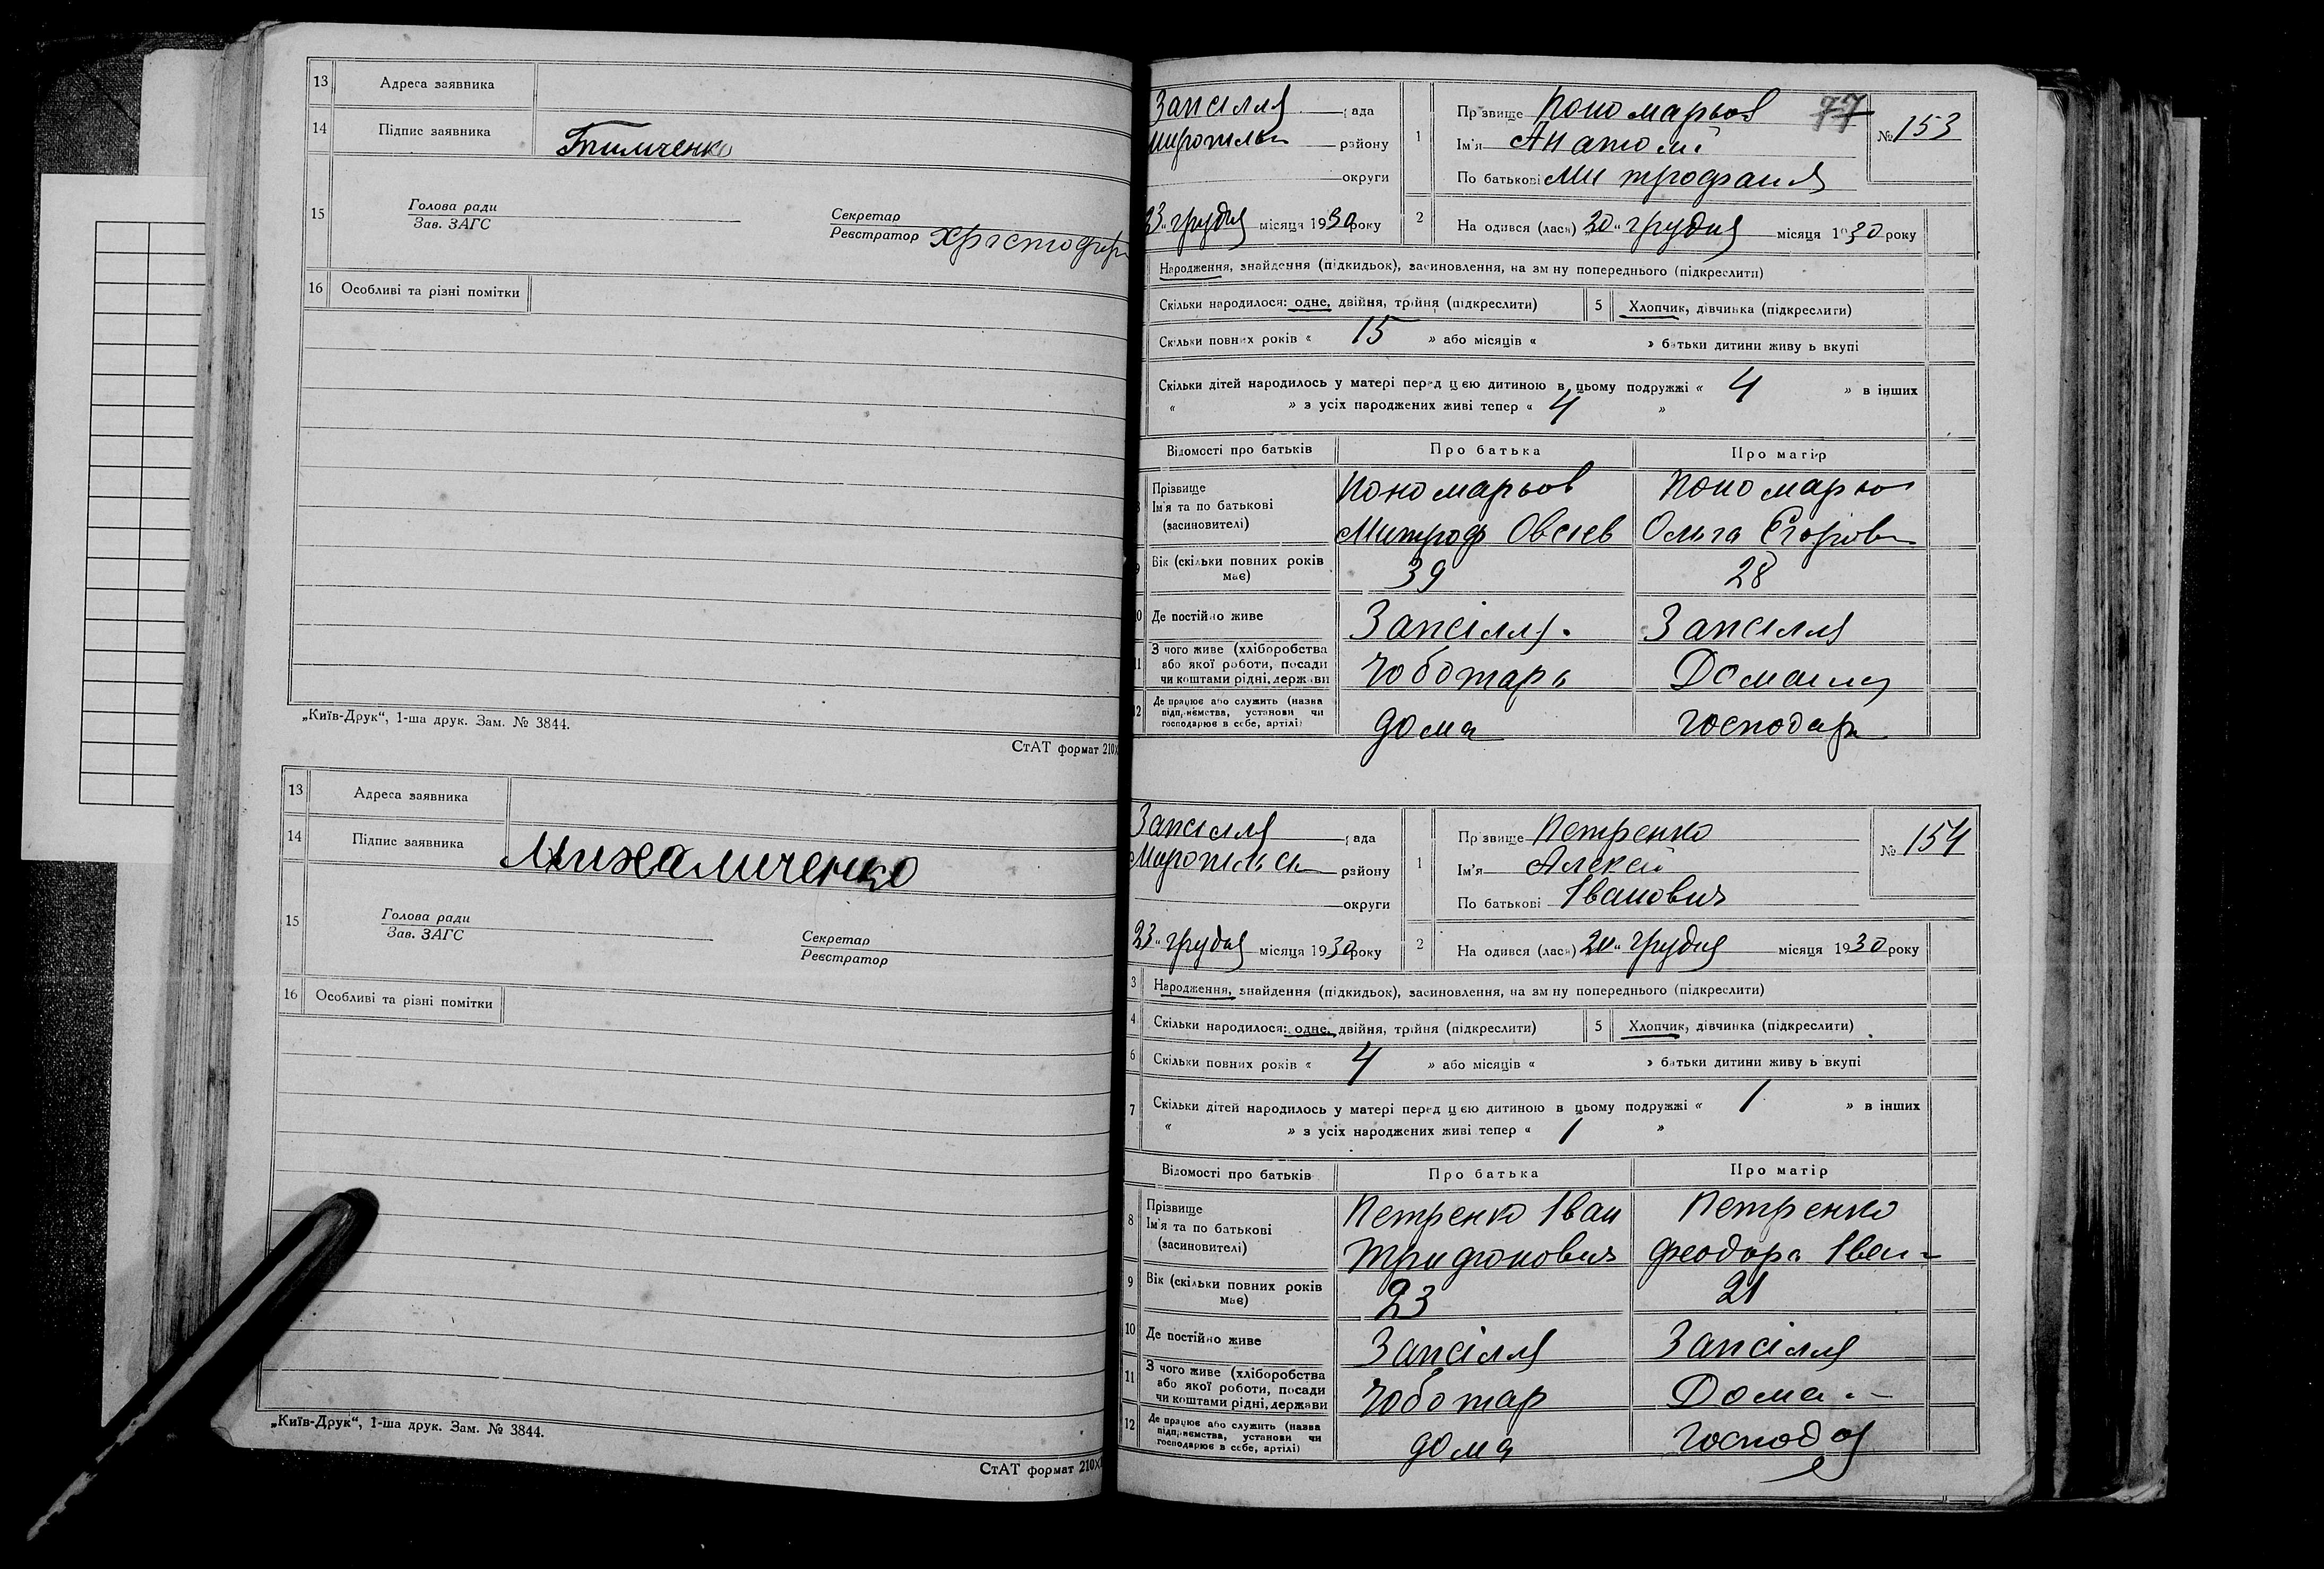 13 Адреса заявника
14 Підпис заявника
15 Голова ради
Зав. ЗАГС
Секретар
Реєстратор
16 Особливі та різні помітки
„Київ-Друк“, 1-ша друк. Зам. № 3844.
СтАТ формат 210х
13 Адреса заявника
14 Підпис заявника Михаличенко
15 Голова ради
Зав. ЗАГС
Секретар
Реєстратор
16 Особливі та різні помітки
„Київ-Друк“, 1-ша друк. Зам. № 3844.
СтАТ формат 210х
Запсілля рада
району
округи
23 „ грудня місяця 1930 року
1 Прізвище Пономарьов 77
Ім'я Анатолій
По батькові
№ 153
2 На одився (лася) „20„ грудня місяця 1930 року
Народження, знайдення (підкидьок), засиновлення, на зм ну попереднього (підкреслити)
Скільки народилося: одне, двійня, трійня (підкреслити) 5 Хлопчик, дівчинка (підкреслити)
Скільки повних років « 15 » або місяців « » батьки дитини живу ь вкупі
Скільки дітей народилось у матері перед цією дитиною в цьому подружжі « 4 » в інших
« » з усіх народжених живі тепер « 4 »
Відомості про батьків Про батька Про матір
Прізвище Ім'я та по батькові (засиновителі)
Пономарьов Митроф Овсієв
Ольга Єгорів
9 Вік (скільки повних років має) 39 28
10 Де постійно живе Запсілля. Запсілля
11 З чого живе (хліборобства або якої роботи, посади чи коштами рідні, держави Чоботарь Домашня
12 Де працює або служить (назва підприємства, установи чи господарює в себе, артілі) дома господар
Запсілля рада
Миропільськ району
округи
23 „ грудня місяця 1930 року
1 Прізвище Петренко
Ім'я Алексій
По батькові Іванович
№ 154
2 На одився (лася) грудня місяця 1930 року
3 Народження, знайдення (підкидьок), засиновлення, на зм ну попереднього (підкреслити)
4 Скільки народилося: одне, двійня, трійня (підкреслити) 5 Хлопчик, дівчинка (підкреслити)
6 Скільки повних років « 4 » або місяців « » батьки дитини живу ь вкупі
7 Скільки дітей народилось у матері перед цією дитиною в цьому подружжі « 1 » в інших
« » з усіх народжених живі тепер « 1 »
Відомості про батьків Про батька Про матір
8 Прізвище Ім'я та по батькові (засиновителі)
Петренко Іван Трифонович
Петренко Феодора Іван
9 Вік (скільки повних років має) 23 21
10 Де постійно живе Запсілля Запсілля
11 З чого живе (хліборобства або якої роботи, посади чи коштами рідні, держави Чоботар Дома
12 Де працює або служить (назва підприємства, установи чи господарює в себе, артілі) дома